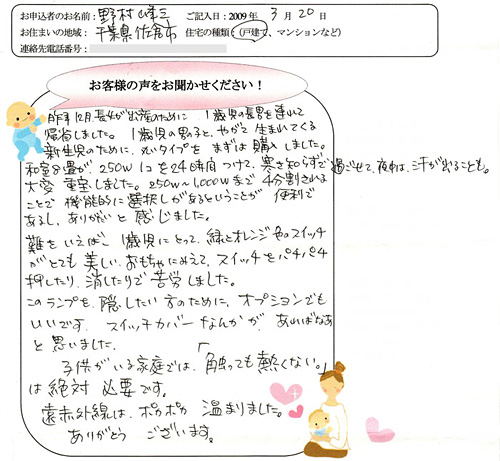 お申込者のお名前：野村 峰三 ご記入日：2009年 3月 20日
お住まいの地域：千葉県佐倉市 住宅の種類：(戸建て、マンションなど)
連絡先電話番号：
お客様の声をお聞かせください！
昨年12月、長女が出産のために 1歳児の長男を連れて
帰省しました。1歳児の男の子と、やがて生まれてくる
新生児のために、丸いタイプを まずは購入しました。
和室8畳が、250W 1コを24時間つけて、寒さ知らずで過ごせて、夜中は、汗が出ることも。
大変 重宝しました。250W〜1,000Wまで 4分割される
ことで 機能的に選択しがあるということが 便利で
あるし、ありがたいと 感じました。
難をいえば、1歳児にとって、緑とオレンジ色のスイッチ
がとても 美しい おもちゃにみえて、スイッチをパチパチ
押したり、消したりで 苦労しました。
このランプを 隠したい 方のために、オプションでも
いいです、スイッチカバーなんかが、あればなあ
と思いました。
子供がいる家庭では、「触っても熱くない。」
は 絶対 必要です。
遠赤外線は、ポカポカ 温まりました。
ありがとう ございます。